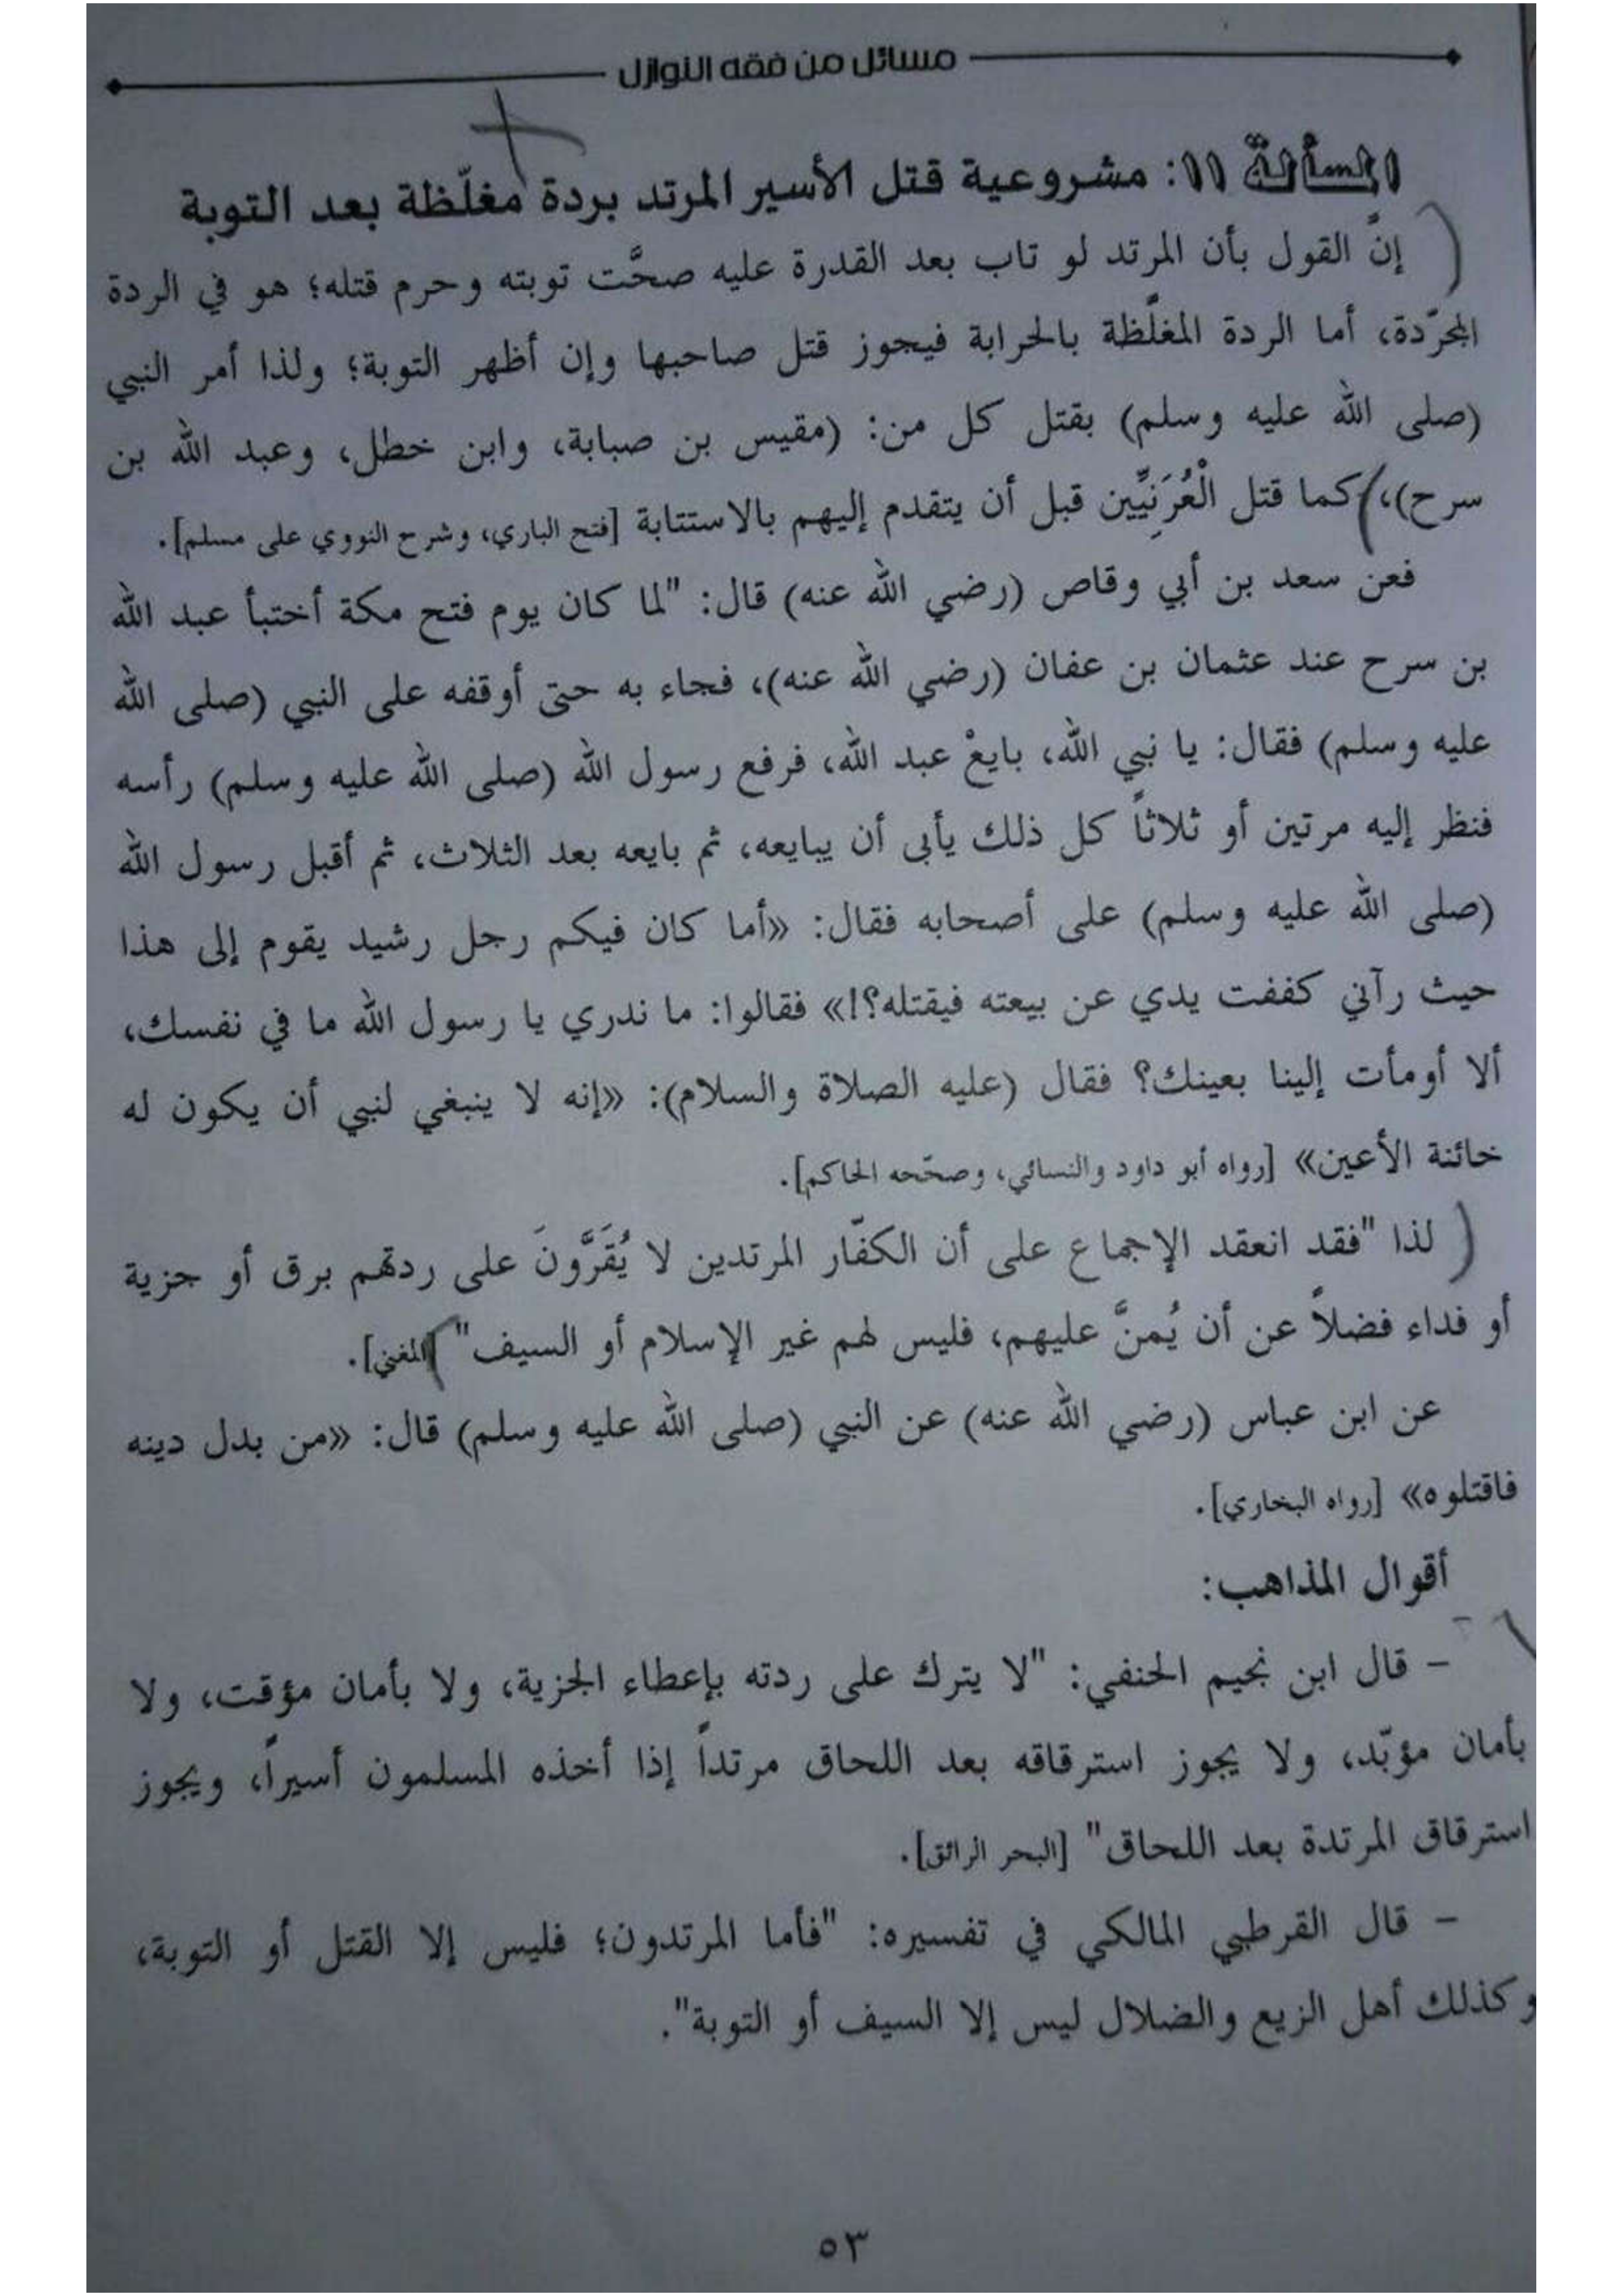 مسائل من فقه النوازل
المسألة ١١: مشروعية قتل الأسير المرتد بردة مغلّظة بعد التوبة
إنَّ القول بأن المرتد لو تاب بعد القدرة عليه صحَّت توبته وحرم قتله؛ هو في الردة
المجرّدة، أما الردة المغلَّظة بالحرابة فيجوز قتل صاحبها وإن أظهر التوبة؛ ولذا أمر النبي
(صلى الله عليه وسلم) بقتل كل من: (مقيس بن صبابة، وابن خطل، وعبد الله بن
سرح)، كما قتل الْعُرَنِيِّين قبل أن يتقدم إليهم بالاستتابة [فتح الباري، وشرح النووي على مسلم].
فعن سعد بن أبي وقاص (رضي الله عنه) قال: "لما كان يوم فتح مكة أختبأ عبد الله
بن سرح عند عثمان بن عفان (رضي الله عنه)، فجاء به حتى أوقفه على النبي (صلى الله
عليه وسلم) فقال: يا نبي الله، بايعْ عبد الله، فرفع رسول الله (صلى الله عليه وسلم) رأسه
فنظر إليه مرتين أو ثلاثاً كل ذلك يأبى أن يبايعه، ثم بايعه بعد الثلاث، ثم أقبل رسول الله
(صلى الله عليه وسلم) على أصحابه فقال: «أما كان فيكم رجل رشيد يقوم إلى هذا
حيث رآني كففت يدي عن بيعته فيقتله؟!» فقالوا: ما ندري يا رسول الله ما في نفسك،
ألا أومأت إلينا بعينك؟ فقال (عليه الصلاة والسلام): «إنه لا ينبغي لنبي أن يكون له
خائنة الأعين» [رواه أبو داود والنسائي، وصحّحه الحاكم].
لذا "فقد انعقد الإجماع على أن الكفّار المرتدين لا يُقَرَّونَ على ردتهم برق أو جزية
أو فداء فضلاً عن أن يُمنَّ عليهم، فليس لهم غير الإسلام أو السيف" [المغني].
عن ابن عباس (رضي الله عنه) عن النبي (صلى الله عليه وسلم) قال: «من بدل دينه
فاقتلوه» [رواه البخاري].
أقوال المذاهب:
– قال ابن نجيم الحنفي: "لا يترك على ردته بإعطاء الجزية، ولا بأمان مؤقت، ولا
بأمان مؤبّد، ولا يجوز استرقاقه بعد اللحاق مرتداً إذا أخذه المسلمون أسيراً، ويجوز
استرقاق المرتدة بعد اللحاق" [البحر الرائق].
– قال القرطبي المالكي في تفسيره: "فأما المرتدون؛ فليس إلا القتل أو التوبة،
وكذلك أهل الزيع والضلال ليس إلا السيف أو التوبة".
٥٣